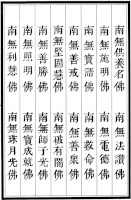 南無供養名佛
南無施明佛
南無寶語佛
南無善戒佛
南無堅固慧佛
南無善勝佛
南無照明佛
南無利慧佛
南無法讚佛
南無電德佛
南無救命佛
南無善衆佛
南無破有闇佛
南無師子光佛
南無寶成就佛
南無珠月光佛